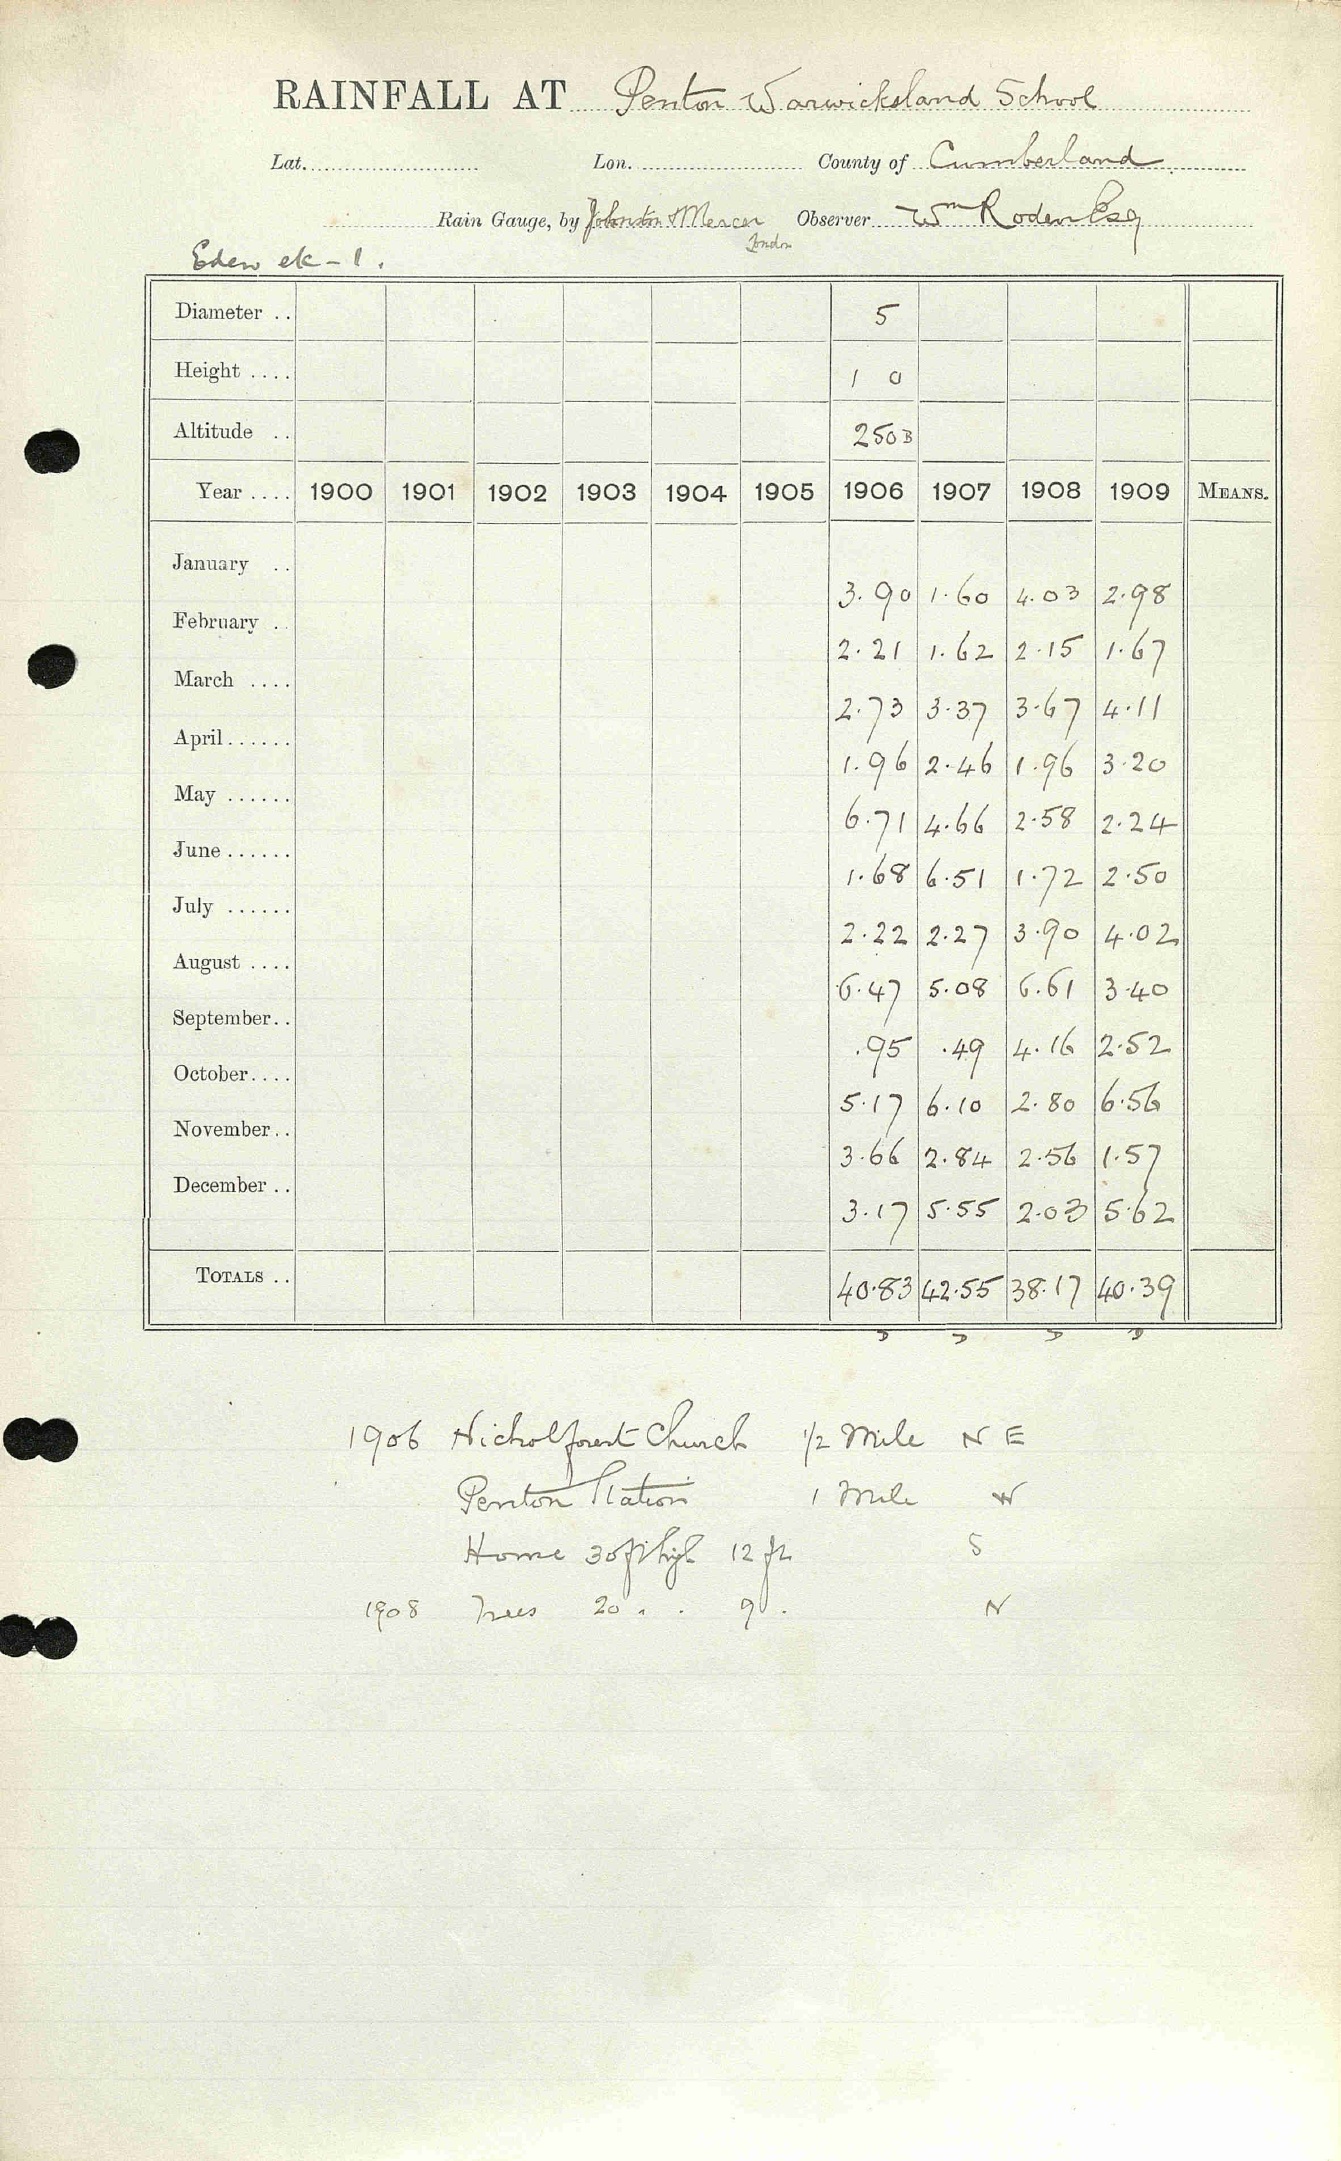 RAINFALL AT Penton Warwicksland School
Lat. Lon. County of Cumberland
Rain Gauge, by Johnston & Mercer London Observer Wm Roden Esq
Eden ek-1.
Diameter .. 5
Height .... 1 0
Altitude .. 250 B
Year .... 1900 1901 1902 1903 1904 1905 1906 1907 1908 1909 MEANS.
January .. 3.90 1.60 4.03 2.98
February . 2.21 1.62 2.15 1.67
March .... 2.73 3.37 3.67 4.11
April...... 1.96 2.46 1.96 3.20
May ...... 6.71 4.66 2.58 2.24
June...... 1.68 6.51 1.72 2.50
July ...... 2.22 2.27 3.90 4.02
August .... 6.47 5.08 6.61 3.40
September.. .95 .49 4.16 2.52
October.... 5.17 6.10 2.80 6.56
November.. 3.66 2.84 2.56 1.57
December .. 3.17 5.55 2.03 5.62
TOTALS .. 40.83 42.55 38.17 40.39
1906 Nicholforest Church 1/2 Mile N E
Penton Station 1 Mile W
Home 30 ft high 12 ft S
1908 Trees 20 . . 9 . N